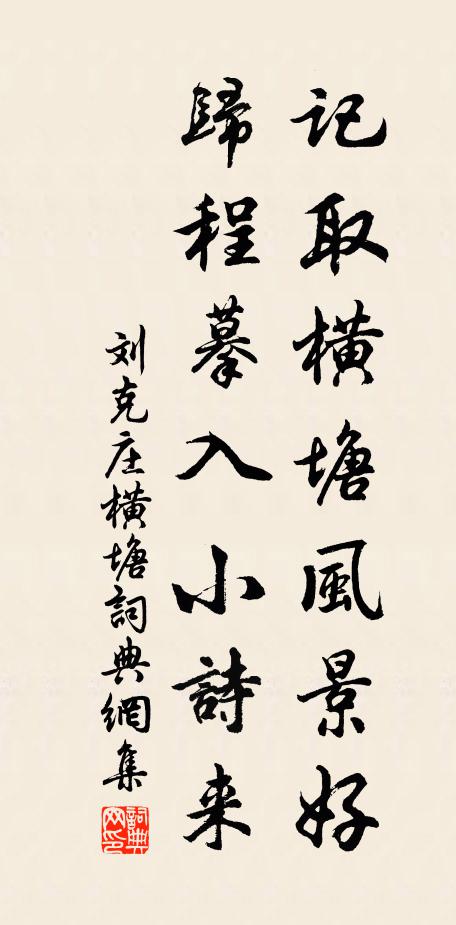 記取橫塘風景好
歸程摹入小詩来
刘克庄橫塘詞典網集
詞典網印